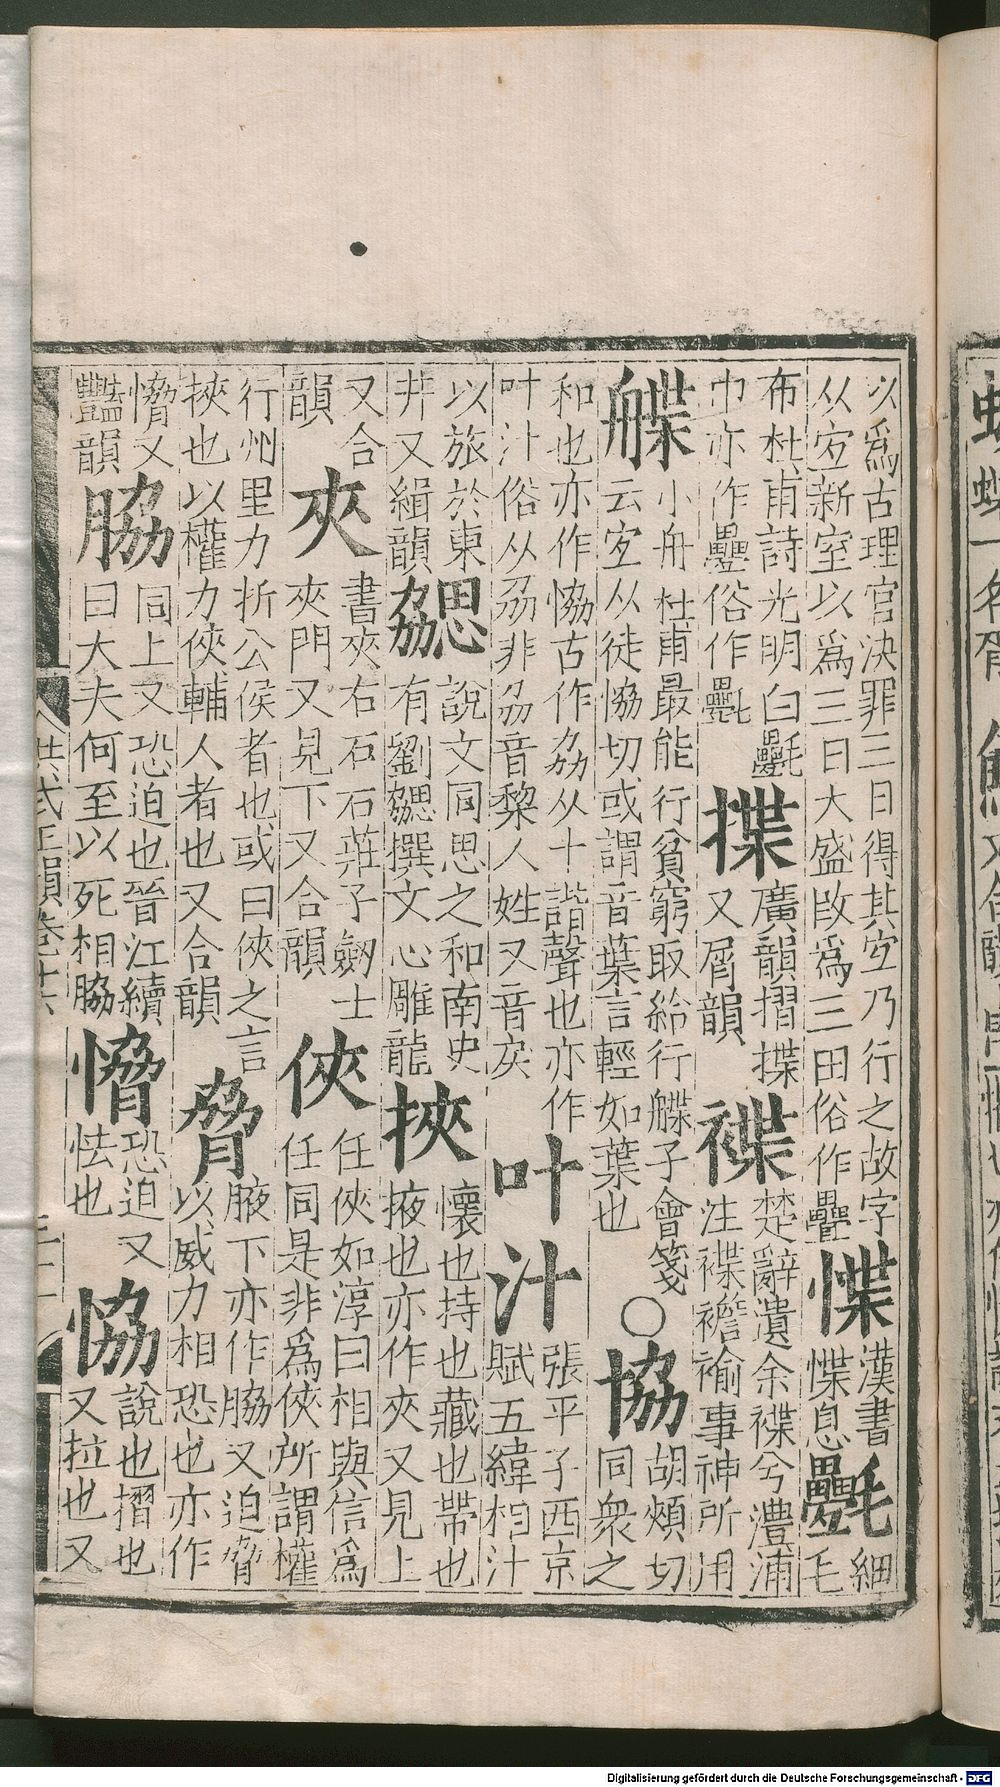 以爲古理官決罪三日得其宐乃行之故字从宐新室以爲三日大盛改爲三田俗作疊 惵 漢書惵息 氎 細毛
布杜甫詩光明白氎巾亦作疊俗作㲲 揲 廣韻摺揲又屑韻 褋 楚辭遺余褋兮澧浦注褋襜褕事神所用
艓 小舟杜甫最能行貧窮取給行艓子會箋云宐从徒協切或謂音葉言輕如葉也 ○ 協 胡頰切同衆之
和也亦作恊古作劦从十諧聲也亦作叶汁俗从刕非刕音黎人姓又音戾 叶 汁 張平子西京賦五緯相汁
以旅於東井又緝韻 勰 說文同思之和南史有劉勰撰文心雕龍 挾 懷也持也藏也帶也掖也亦作夾又見上
又合韻 夾 書夾右石石莊子劒士夾門又見下又合韻 俠 任俠如淳曰相與信爲任同是非爲俠所謂權
行州里力折公侯者也或曰俠之言挾也以權力俠輔人者也又合韻 脅 腋下亦作脇又迫脅以威力相恐也亦作
愶又豔韻 脇 同上又恐迫也晉江續曰大夫何至以死相脇 愶 恐迫又怯也 恊 說也摺也又拉也又
洪武正韻卷十六
Digitalisierung gefördert durch die Deutsche Forschungsgemeinschaft - DFG